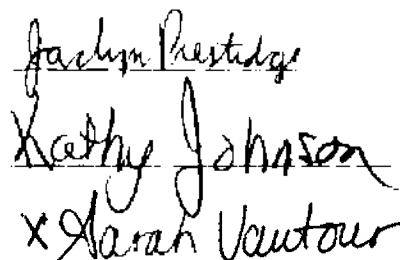 Jaclyn Prestidge
Kathy Johnson
x Sarah Vautour